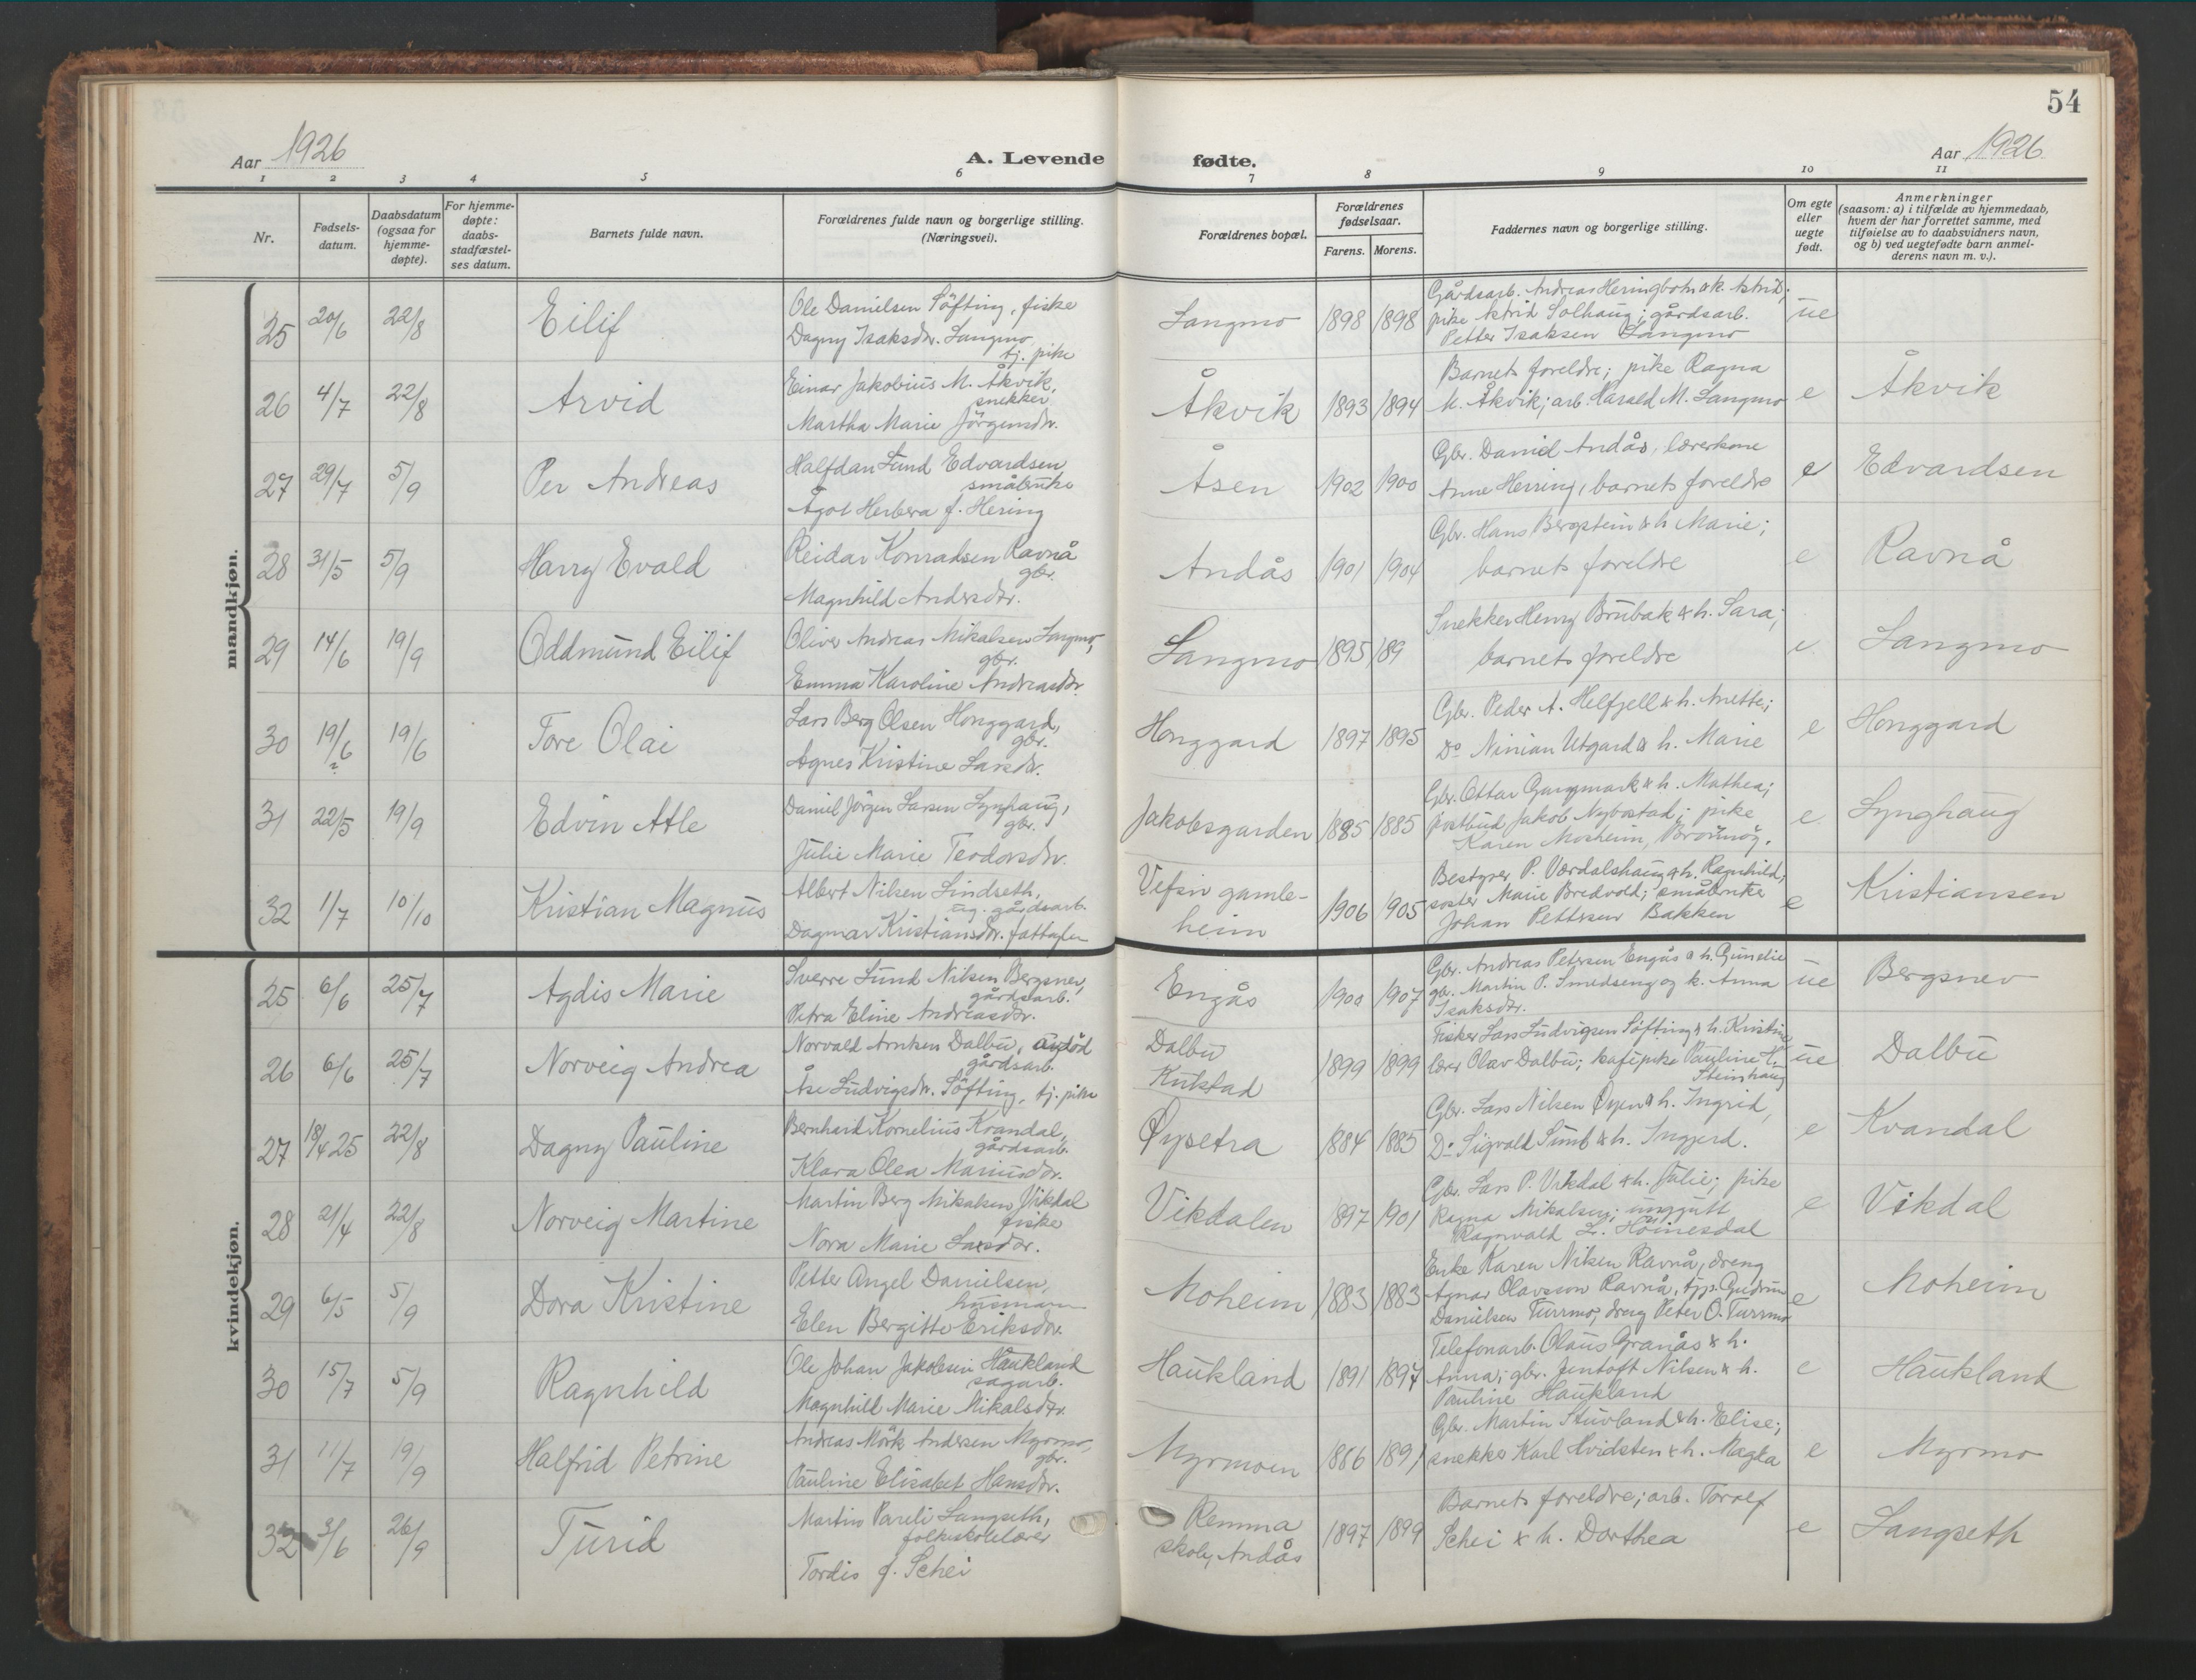 54
Aar 1926
A. Levende fødte.
Aar 1926
1 2 3 4 5 6 7 8 9 10 11
Nr.
Fødsels-
datum.
Daabsdatum
(ogsaa for
hjemme-
døpte).
For hjemme-
døpte:
daabs-
stadfæstel-
ses datum.
Barnets fulde navn.
Forældrenes fulde navn og borgerlige stilling.
(Næringsvei).
Forældrenes bopæl.
Forældrenes
fødselsaar.
Farens. Morens.
Faddernes navn og borgerlige stilling.
Om egte
eller
uegte
født.
Anmerkninger
(saasom: a) i tilfælde av hjemmedaab,
hvem der har forrettet samme, med
tilføielse av to daabsvidners navn,
og b) ved uegtefødte barn anmel-
derens navn m. v.).
mandkjøn.
25 20/6 22/8 Eilif
Ole Danielsen Söfting, fisker
Dagny Isaksdr. Langmo,
tj. pike
Langmo 1898 1898
Gårdsarb. Andreas Heringbotn & k. Astrid;
pike Astrid Solhaug; gårdsarb.
Petter Isaksen Langmo
ue
26 4/7 22/8 Arvid
Einar Jakobius M. Åkvik,
snekker
Martha Marie Jörgensdr.
Åkvik 1893 1894
Barnets foreldre; pike Ragna
M. Åkvik; arb. Harald M. Langmo
e Åkvik
27 29/7 5/9 Per Andreas
Halfdan Lund Edvardsen
småbruker
Ågot Herbera f. Hering
Åsen 1902 1900
Gbr. Daniel Andås, lærerkone
Anne Herring, barnets foreldre
e Edvardsen
28 31/5 5/9 Harry Evald
Reidar Konradsen Ravnå
gbr.
Magnhild Andersdr.
Andås 1901 1904
Gbr. Hans Bergstein & h. Marie;
barnets foreldre
e Ravnå
29 14/6 19/9 Oddmund Eilif
Oliver Andreas Mikalsen Langmo,
gbr.
Emma Karoline Andreasdr.
Langmo 1895 189
Snekker Henry Brubak & h. Sara;
barnets foreldre
e. Langmo
30 19/6 ? 19/6 Tore Olai
Lars Berg Olsen Honggard,
gbr.
Agnes Kristine Larsdr.
Honggard 1897 1895
Gbr. Peder A. Helfjell & h. Anette;
Do Ninian Utgard & h. Marie
e Honggard
31 22/5 19/9 Edvin Atle
Daniel Jörgen Larsen Lynghaug,
gbr.
Julie Marie Teodorsdr.
Jakobsgarden 1885 1885
Gbr. Ottar Gangmark & h. Mathea;
postbud Jakob Nybostad; pike
Karen Mosheim,
e Lynghaug
32 1/7 10/10 Kristian Magnus
Albert Nilsen Lindseth,
ug. gårdsarb.
Dagmar Kristiansdr.
Vefsn gamle-
heim
1906 1905
Bestyrer P. Værdalshaug & h. Ragnhild;
søster Marie Bredvold; småbruker
Johan Pettersen Bakken
e Kristiansen
kvindekjøn.
25 6/6 25/7 Agdis Marie
Sverre Lund Nilsen Bergsnev,
gårdsarb.
Petra Eline Andreasdr.
Engås 1900 1907
Gbr. Andreas Petersen Engås & h. Gunelie
gbr. Martin P. Smedseng og k. Anna
Isaksdr.
ue Bergsnev
26 6/6 25/7 Norveig Andrea
Norvald Arntsen Dalbu, avdöd
gårdsarb.
Åse Ludvigsdr. Söfting, tj. pike
Dalbu
Kulstad
1899 1899
Fisker Lars Ludvigsen Söfting & h. Kristine
lærer Olav Dalbu; kafépike Pauline K.
Steinhaug
ue Dalbu
27 18/4 25 22/8 Dagny Pauline
Bernhard Kornelius Kvandal,
gårdsarb.
Klara Olea Mariusdr.
Øysetra 1884 1885
Gbr. Lars Nilsen Øyen & h. Ingrid,
Do Sigvald & h. Ingjerd.
e Kvandal
28 21/4 22/8 Norveig Martine
Martin Berg Mikalsen Vikdal
fisker
Nora Marie Larsdr.
Vikdalen 1897 1901
Gbr. Lars P. Vikdal & h. Julie; pike
Ragna Mikalsen; unggutt
Ragnvald L. Höinesdal
e Vikdal
29 6/5 5/9 Dora Kristine
Petter Angel Danielsen,
husmann
Elen Bergitte Eriksdr.
Moheim 1883 1883
Enke Karen Nilsen Ravnå, dreng
Agnar Olavsson Ravnå, tjp. Gudrun
Danielsen Turrmo; dreng Peter O. Turrmo
e Moheim
30 15/7 5/9 Ragnhild
Ole Johan Jakobsen Haukland
sagarb.
Magnhild Marie Nikolsdtr.
Haukland 1891 1897
Telefonarb. Olaus Granås & h.
Anna; gbr. Jentoft Nilsen & h.
Pauline Haukland
e Haukland
31 11/7 19/9 Halfrid Petrine
Andreas Mörk Andersen Myrmo,
gbr.
Pauline Elisabet Hansdr.
Myrmoen 1886 1891
Gbr. Martin Stuvland & h. Elise;
snekker Karl Hvidsten & h. Magla
e Myrmo
32 3/6 26/9 Turid
Martin Pareli Langseth,
folkeskolelærer
Tordis f. Schei
Remma
skole, Andås
1897 1899
Barnets foreldre; arb. Toralf
Schei & h. Dorthea
e Langseth